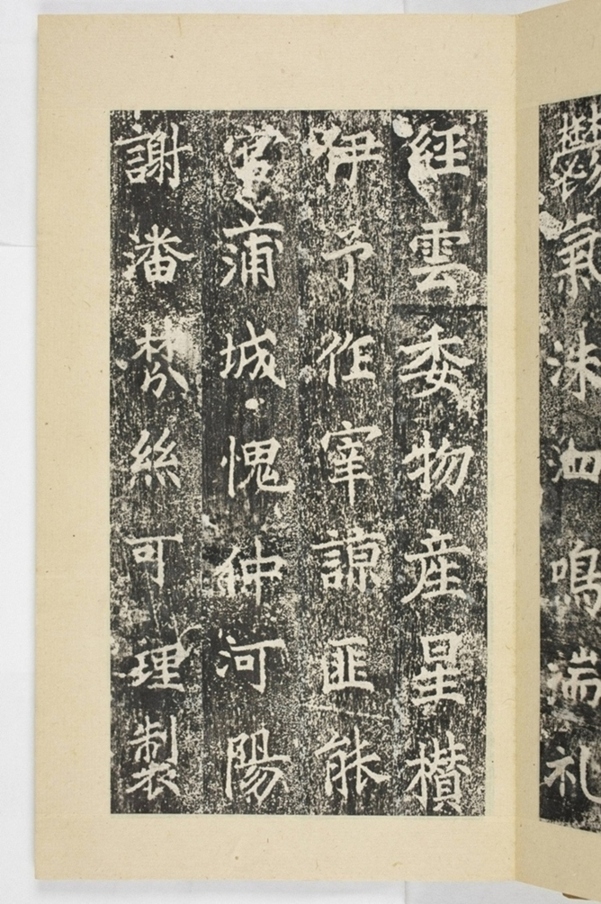 鬱氣洙泗鳴湍礼
經雲委物産星欑
伊予作宰諒匪能
蒲城愧仲河陽
謝潘棼絲可理製